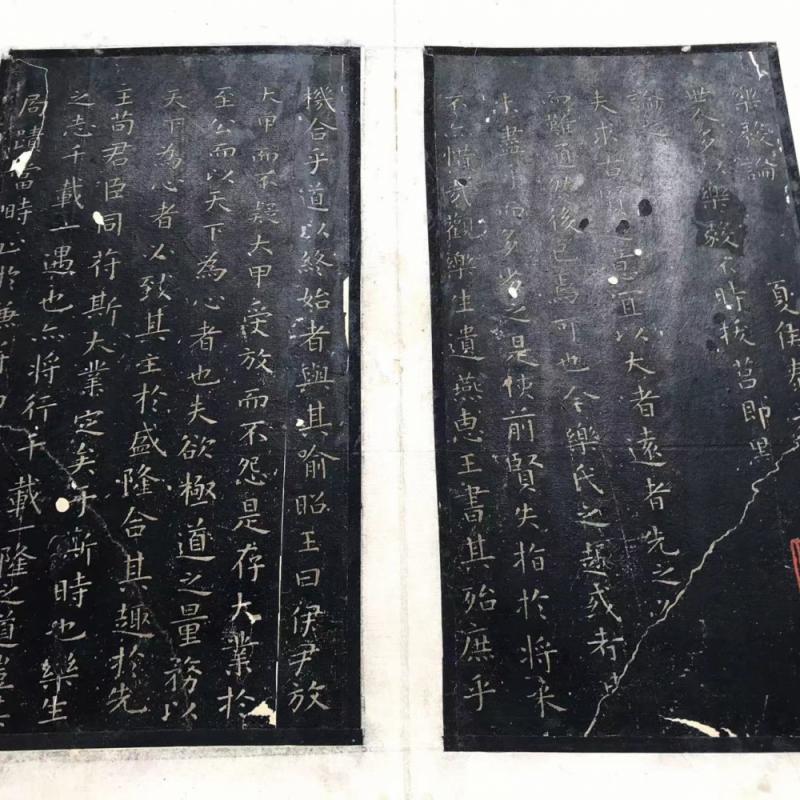 樂毅論
夏侯泰
世人多以樂毅不時拔莒即墨
論之
夫求古賢之意宜以大者遠者先之必
而難通然後已焉可也今樂氏之趣或者其
未盡乎而多劣之是使前賢失指於將来
不亦惜哉觀樂生遺燕惠王書其殆庶乎
機合乎道以終始者與其喻昭王曰伊尹放
大甲而不疑大甲受放而不怨是存大業於
至公而以天下為心者也夫欲極道之量務以
天下為心者必致其主於盛隆合其趣於先
王苟君臣同符斯大業定矣于斯時也樂生
之志千載一遇也亦將行千載一隆之道豈其
局蹟當時止於兼并